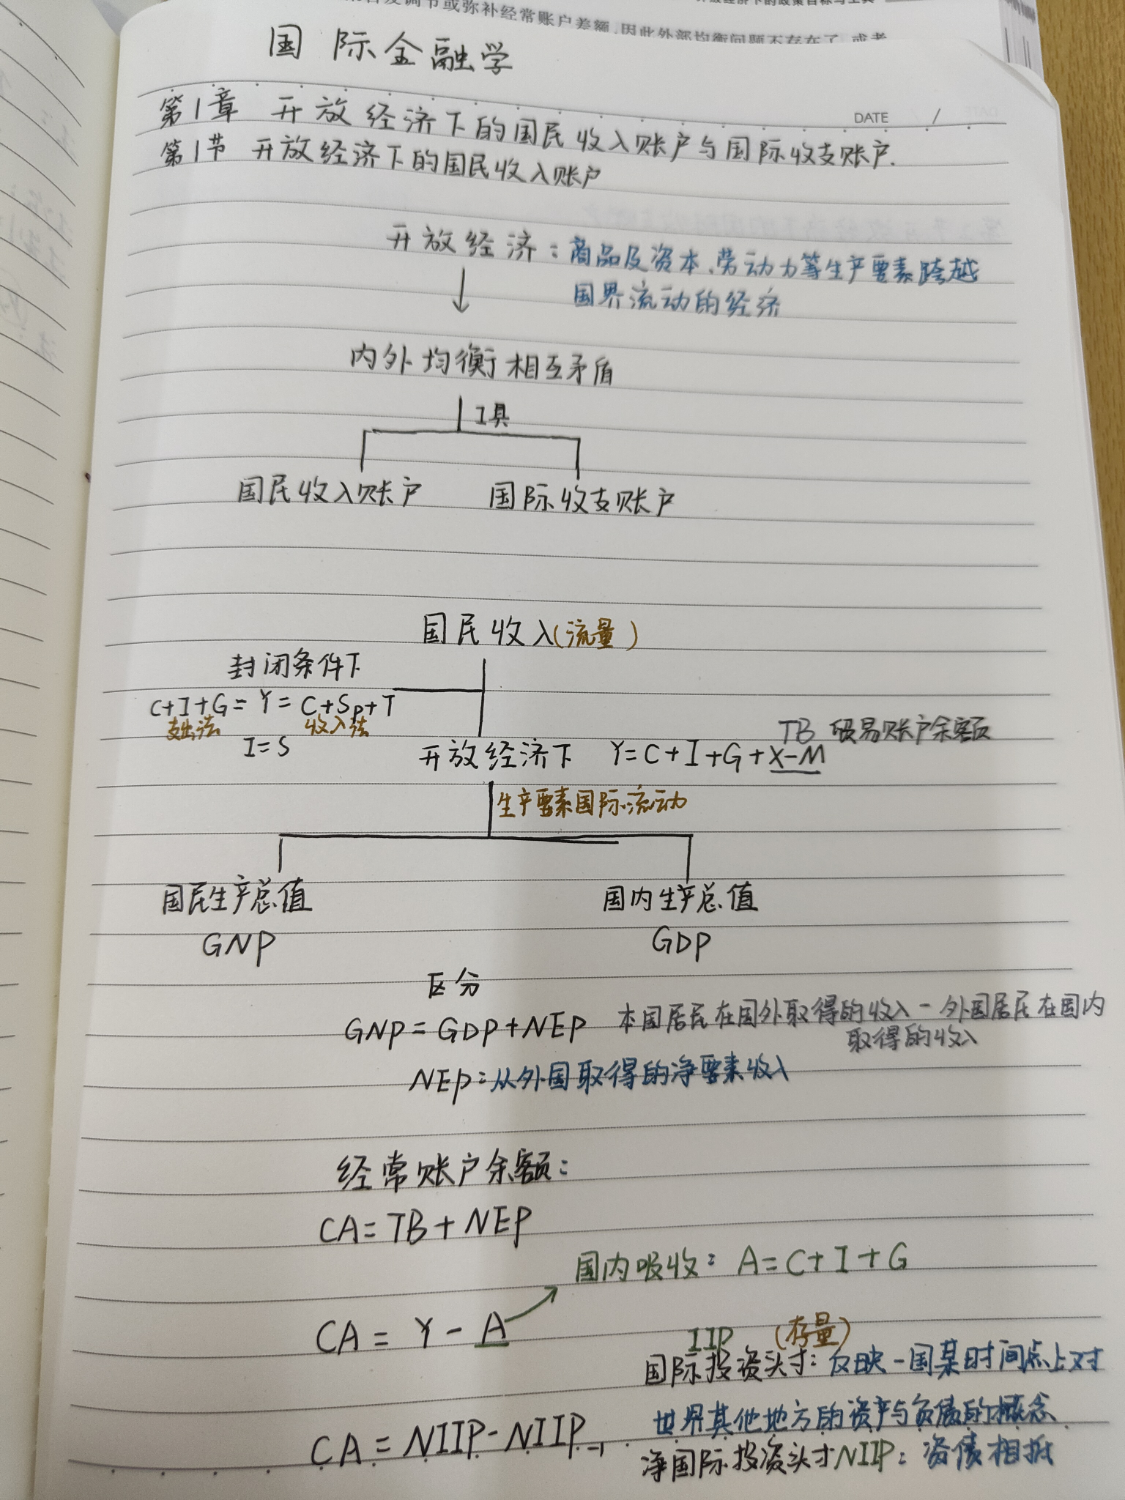 或弥补经常账户差额,因此外部均衡问题不存在了,或者
国际金融学
DATE /
第1章 开放经济下的国民收入账户与国际收支账户.
第1节 开放经济下的国民收入账户
开放经济:商品及资本、劳动力等生产要素跨越
国界流动的经济
内外均衡相互矛盾
工具
国民收入账户 国际收支账户
国民收入(流量)
封闭条件下
C+I+G=Y=C+Sp+T
支出法 收入法
I=S
TB 贸易账户余额
开放经济下 Y=C+I+G+X-M
生产要素国际流动
国民生产总值 国内生产总值
GNP GDP
区分
GNP=GDP+NEP 本国居民在国外取得的收入-外国居民在国内
取得的收入
NEP:从外国取得的净要素收入
经常账户余额:
CA=TB+NEP
国内吸收: A=C+I+G
CA=Y-A
IIP (存量)
国际投资头寸:反映一国某时间点上对
世界其他地方的资产与负债的概念
CA=NIIP-NIIP-1
净国际投资头寸NIIP:资债相抵